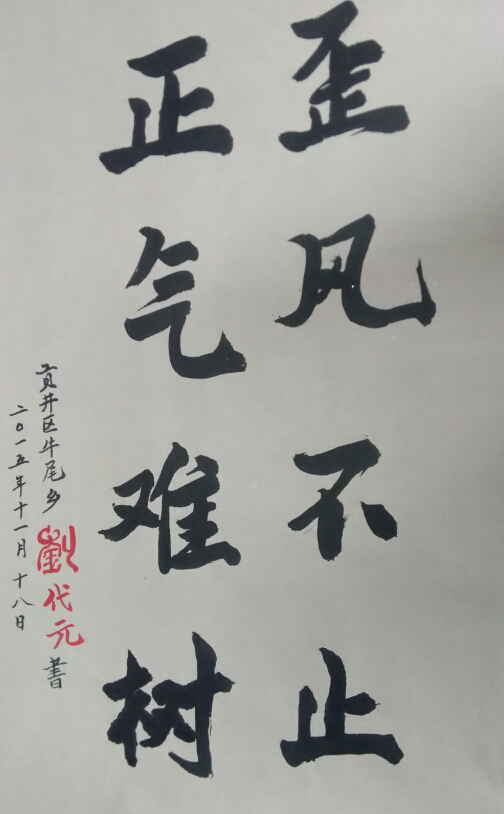 歪风不止
正气难树
贡井区牛尾乡劉代元書
二0一五年十一月十八日